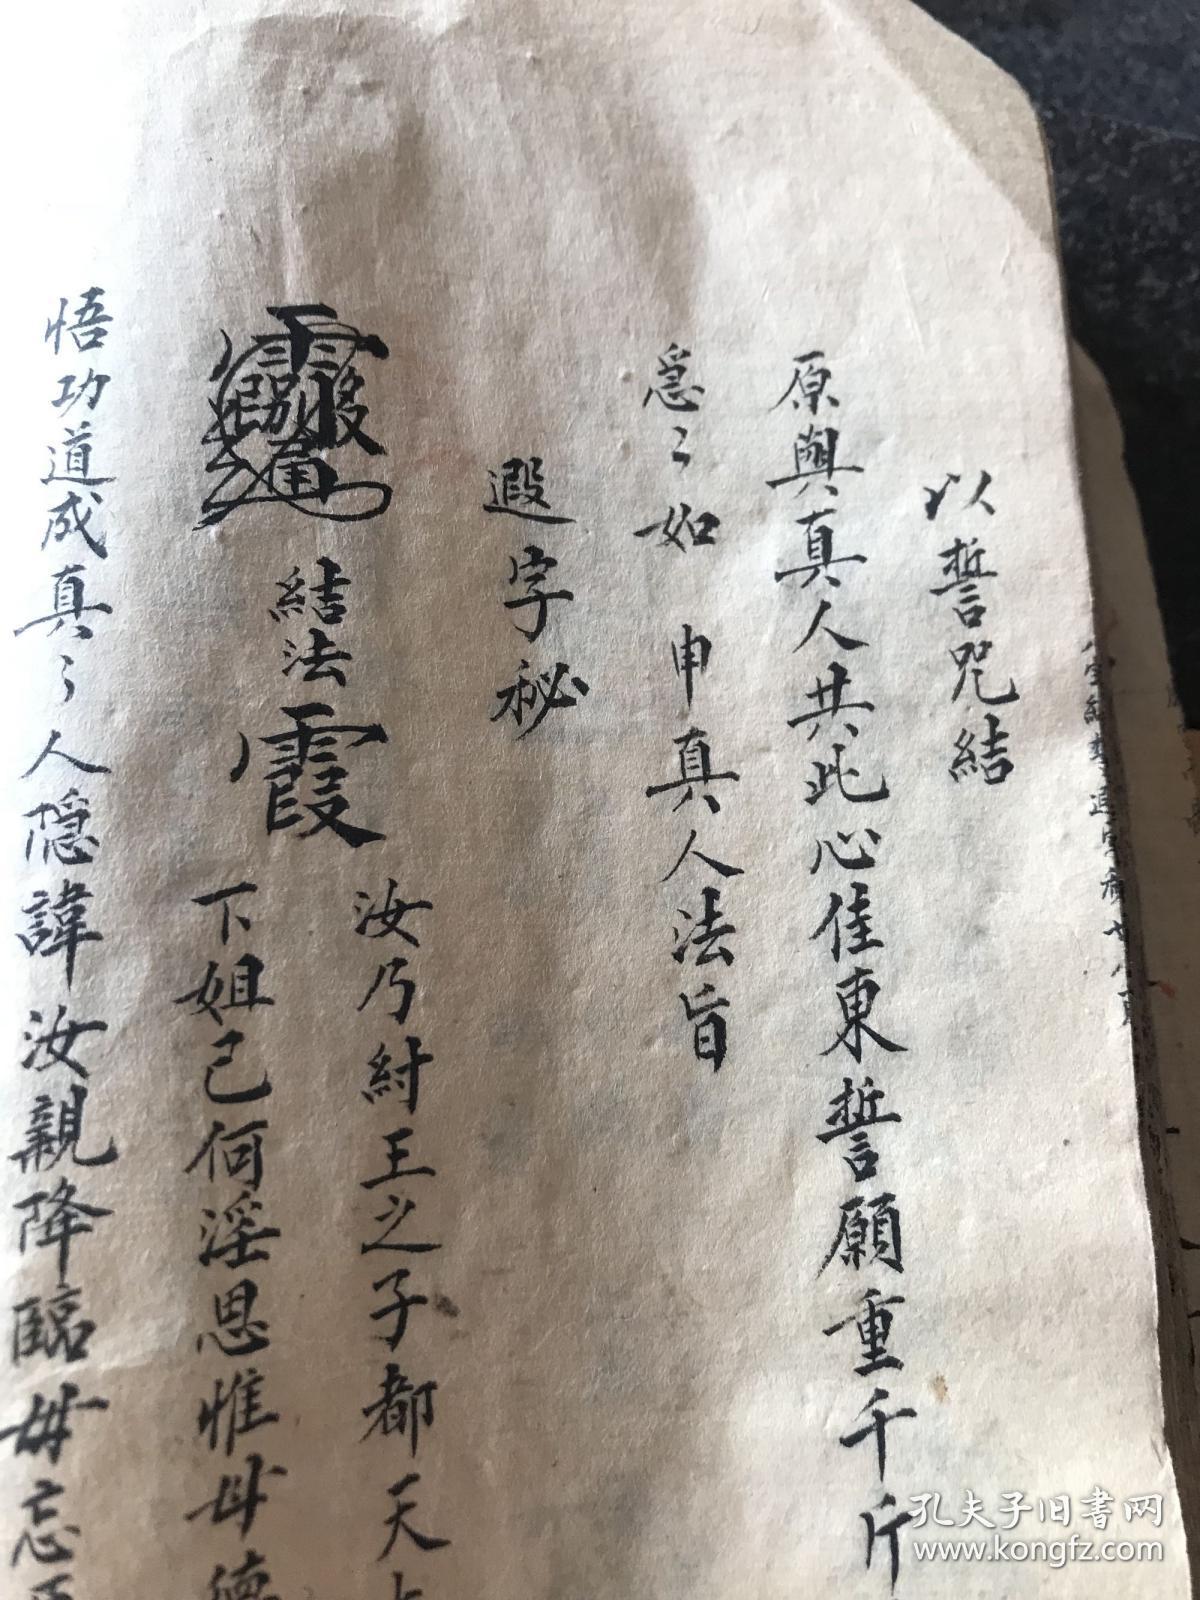 以誓咒結
原與真人共此心佳東誓願重千斤
急〻如 申真人法旨
遐字秘
結法霞
汝乃紂王之子都天
下姐己何淫恩惟毋德
悟功道成真〻人隱諱汝親降臨毋忘
孔夫子旧书网
www.kongfz.com